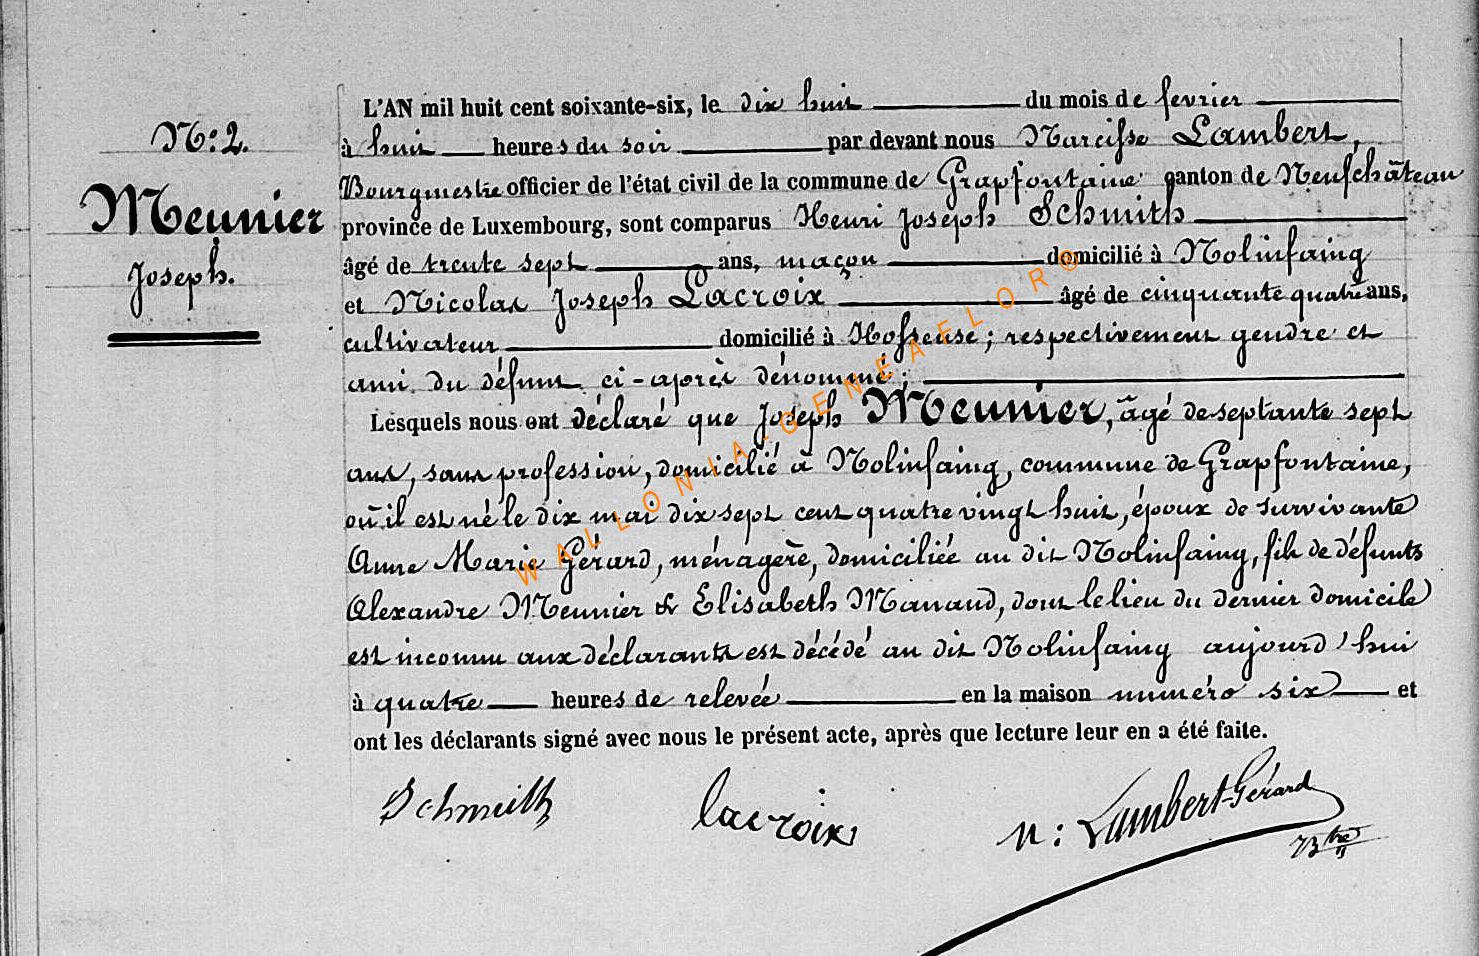 N.o 2.
Meunier
Joseph.
L'AN mil huit cent soixante-six, le dix huit du mois de fevrier
à huit heures du soir par devant nous Narcisse Lambert,
Bourgmestre officier de l'état civil de la commune de Grapfontaine canton de Neufchâteau
province de Luxembourg, sont comparus Henri Joseph Schmith
âgé de trente sept ans, maçon domicilié à Nolinfaing
et Nicolas Joseph Lacroix âgé de cinquante quatre ans,
cultivateur domicilié à Hosseuse ; respectivement gendre et
ami du défunt ci-après dénommé ;
Lesquels nous ont déclaré que Joseph Meunier, âgé de septante sept
ans, sans profession, domicilié à Nolinfaing, commune de Grapfontaine,
où il est né le dix mai dix sept cent quatre vingt huit, époux de survivante
Anne Marie Gérard, ménagère, domiciliée au dit Nolinfaing, fils de défunts
Alexandre Meunier & Elisabeth Manand, dont le lieu du dernier domicile
est inconnu aux déclarants est décédé au dit Nolinfaing aujourd'hui
à quatre heures de relevée en la maison numéro six et
ont les déclarants signé avec nous le présent acte, après que lecture leur en a été faite.
Schmith lacroix N : Lambert-Gérard
Btre
WALLONIA-GENEAELOR®